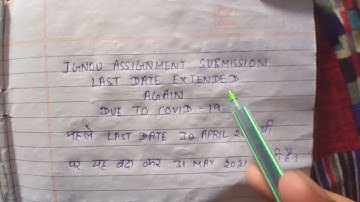 IGNOU ASSIGNMENT SUBMISSION
LAST DATE EXTENDED
AGAIN
DUE TO COVID-19
पहले LAST DATE 30 APRIL थी
पर यह बढ़ा कर 31 MAY 2021